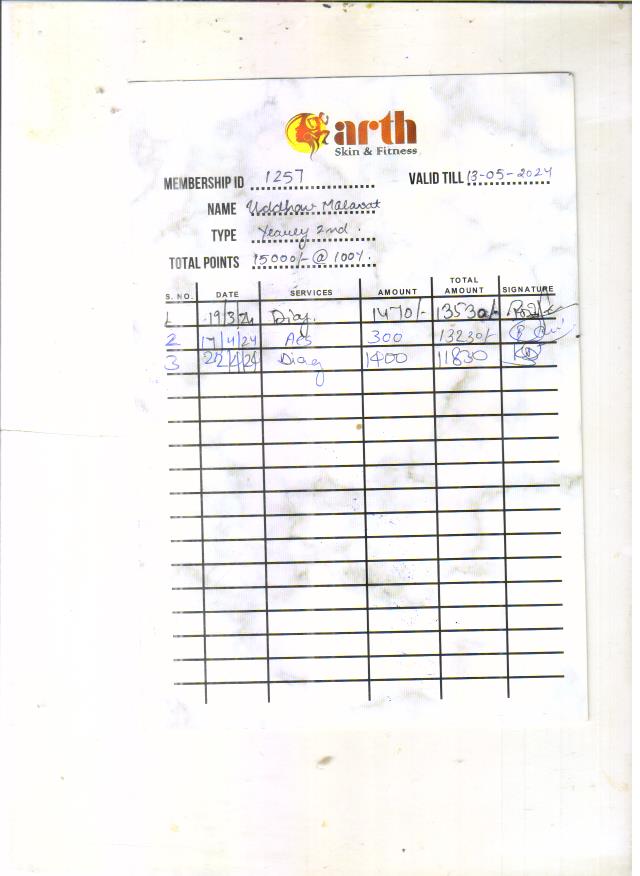 arth
Skin & Fitness
MEMBERSHIP ID 1257 VALID TILL 13-05-2024
NAME Uddhav Malawat
TYPE Yearly 2nd.
TOTAL POINTS 15000/- @ 100%.
S. NO. DATE SERVICES AMOUNT TOTAL AMOUNT SIGNATURE
1 19/3/24 Diag. 1470/- 13530/-
2 17/4/24 Aes 300 13230/-
3 22/4/24 Diag 1400 11830